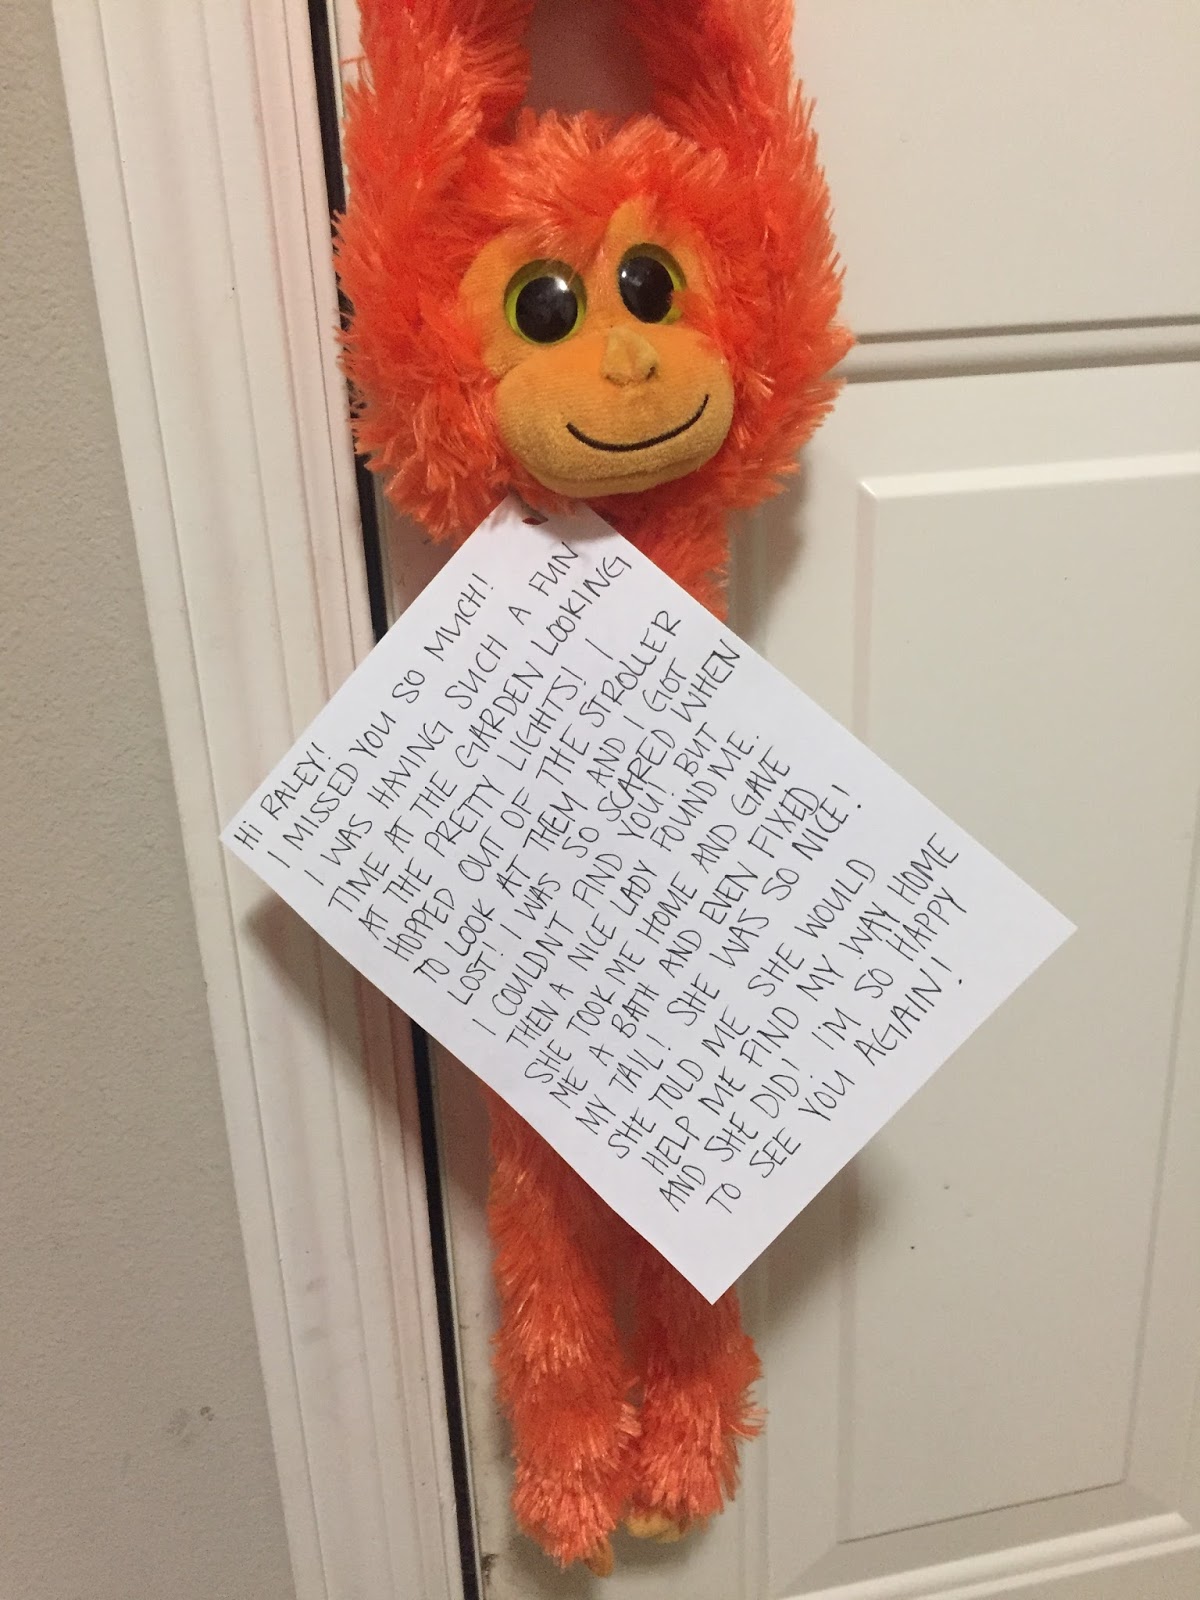 Hi RALEY!
I MISSED YOU SO MUCH!
I WAS HAVING SUCH A FUN
TIME AT THE GARDEN LOOKING
AT THE PRETTY LIGHTS! I
HOPPED OUT OF THE STROLLER
TO LOOK AT THEM AND I GOT
LOST! I WAS SO SCARED WHEN
I COULDN'T FIND YOU! BUT
THEN A NICE LADY FOUND ME.
SHE TOOK ME HOME AND GAVE
ME A BATH AND EVEN FIXED
MY TAIL! SHE WAS SO NICE!
SHE TOLD ME SHE WOULD
HELP ME FIND MY WAY HOME
AND SHE DID! I'M SO HAPPY
TO SEE YOU AGAIN!